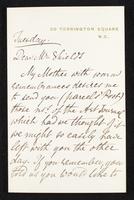 30 TORRINGTON SQUARE
W.C.
Tuesday.
Dear Mr Shields
My Mother with warm
remembrances desires me
to send you (parcels Post)
these nos. of the Art Journal
which had we thought of it
we might so easily have
left with you the other
day. If you remember, you
told us you would like to